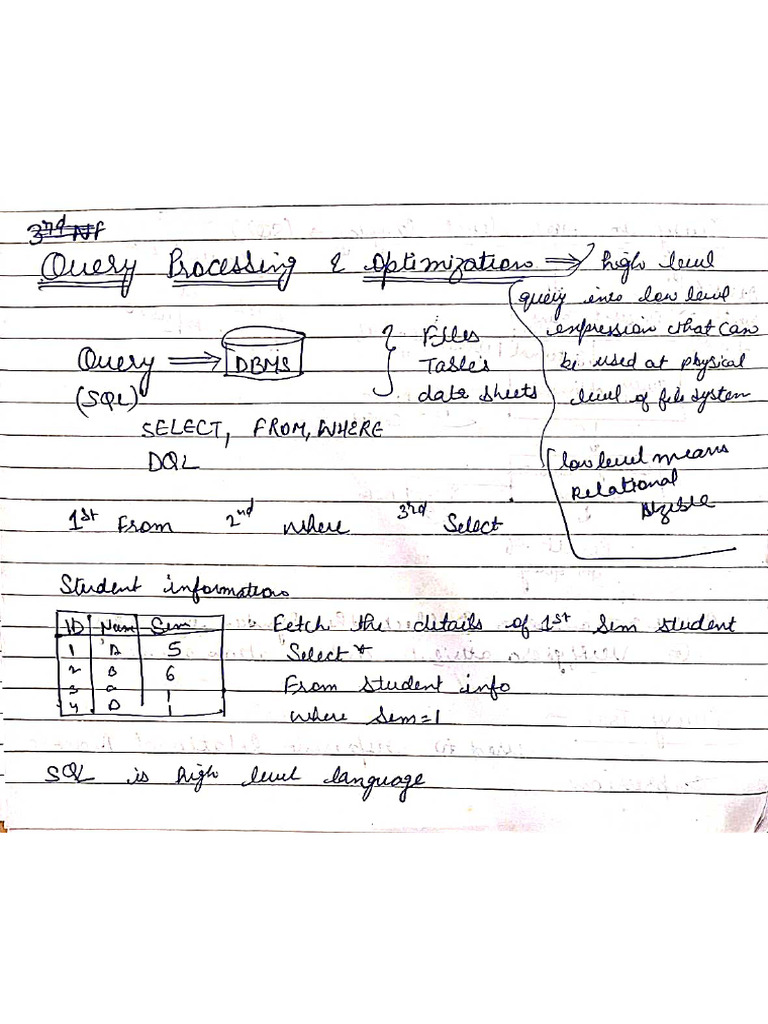 3rd NF
Query Processing & Optimization ⇒ high level
query into low level
expression that can
be used at physical
level of file system
Query ⇒ DBMS
(SQL)
Files
Tables
data sheets
SELECT, FROM, WHERE
DQL
low level means
Relational
1st From 2nd where 3rd Select
Student information
ID Nam Sem
1 A 5
2 B 6
3 C 1
4 D 1
Fetch the details of 1st Sem student
Select *
From Student info
where Sem=1
SQL is high level language